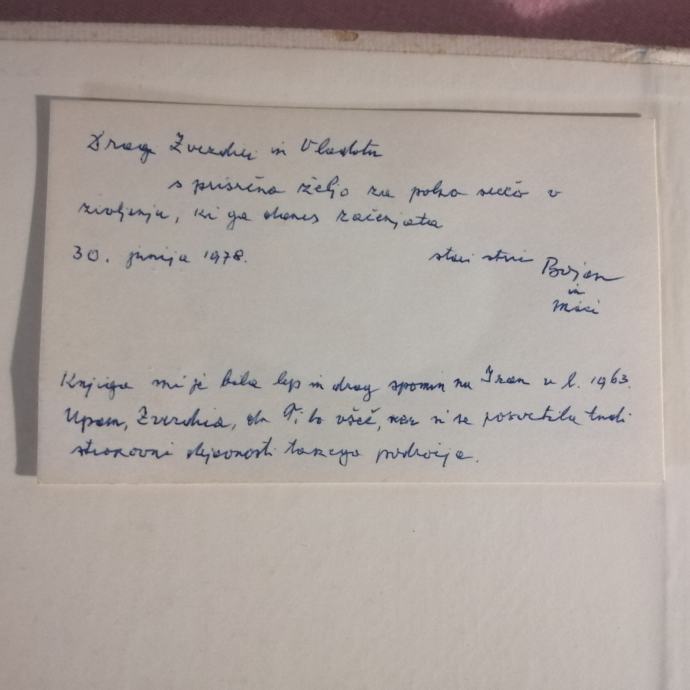 Dragi Zvezdici in Vladotu
s prisrčno željo za polno srečo v
življenju, ki ga danes začenjata
30. junija 1978.
stari stric Bojan
in
Mici
Knjiga mi je bila lep in drag spomin na Iran v l. 1963.
Upam, da Ti bo všeč, ker si se posvetila tudi
strokovni dejavnosti takega področja.